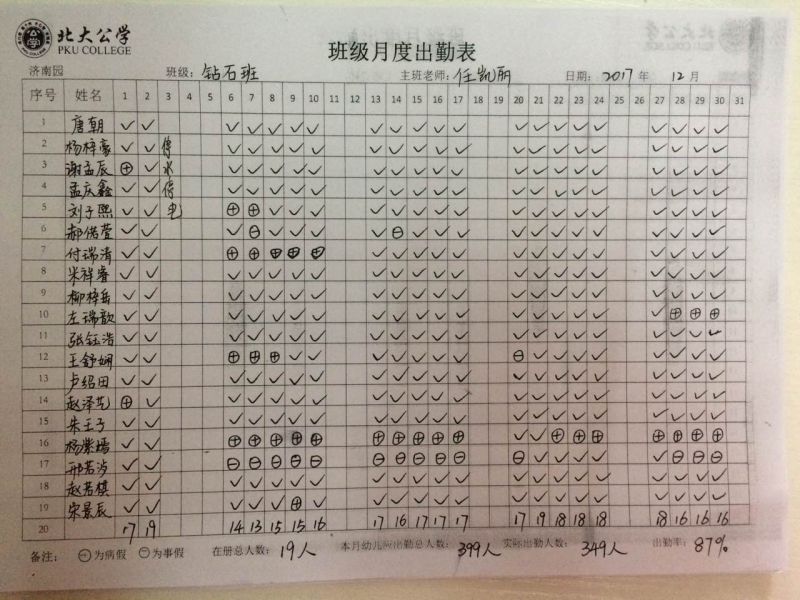 北大公学
PKU COLLEGE
班级月度出勤表
济南园 班级: 钻石班 主班老师: 任凯丽 日期: 2017 年 12 月
序号 姓名 1 2 3 4 5 6 7 8 9 10 11 12 13 14 15 16 17 18 19 20 21 22 23 24 25 26 27 28 29 30 31
1 唐朝 ✓ ✓ ✓ ✓ ✓ ✓ ✓ ✓ ✓ ✓ ✓ ✓ ✓ ✓ ✓ ✓ ✓ ✓ ✓ ✓ ✓
2 杨梓豪 ✓ ✓ 停 ✓ ✓ ✓ ✓ ✓ ✓ ✓ ✓ ✓ ✓ ✓ ✓ ✓ ✓ ✓ ✓ ✓ ✓ ✓
3 谢孟辰 ⊕ ✓ 水 ✓ ✓ ✓ ✓ ✓ ✓ ✓ ✓ ✓ ✓ ✓ ✓ ✓ ✓ ✓ ✓ ✓ ✓ ✓
4 孟庆鑫 ✓ ✓ 停 ✓ ✓ ✓ ✓ ✓ ✓ ✓ ✓ ✓ ✓ ✓ ✓ ✓ ✓ ✓ ✓ ✓ ✓ ✓
5 刘子熙 ✓ ✓ 电 ⊕ ⊕ ✓ ✓ ✓ ✓ ✓ ✓ ✓ ✓ ✓ ✓ ✓ ✓ ✓ ✓ ✓ ✓ ✓
6 郝偌萱 ✓ ✓ ✓ ⊖ ✓ ✓ ✓ ✓ ⊖ ✓ ✓ ✓ ✓ ✓ ✓ ✓ ✓ ✓ ✓ ✓ ✓
7 付瑞清 ✓ ✓ ⊕ ⊕ ⊕ ⊕ ⊕ ✓ ✓ ✓ ✓ ✓ ✓ ✓ ✓ ✓ ✓ ✓ ✓ ✓ ✓
8 朱祥睿 ✓ ✓ ✓ ✓ ✓ ✓ ✓ ✓ ✓ ✓ ✓ ✓ ✓ ✓ ✓ ✓ ✓ ✓ ✓ ✓ ✓
9 柳梓岳 ✓ ✓ ✓ ✓ ✓ ✓ ✓ ✓ ✓ ✓ ✓ ✓ ✓ ✓ ✓ ✓ ✓ ✓ ✓ ✓ ✓
10 左瑞歆 ✓ ✓ ✓ ✓ ✓ ✓ ✓ ✓ ✓ ✓ ✓ ✓ ✓ ✓ ✓ ✓ ✓ ✓ ⊕ ⊕ ⊕
11 张钰浩 ✓ ✓ ✓ ✓ ✓ ✓ ✓ ✓ ✓ ✓ ✓ ✓ ✓ ✓ ✓ ✓ ✓ ✓ ✓ ✓ ✓
12 王舒娴 ✓ ✓ ⊕ ⊕ ⊕ ✓ ✓ ✓ ✓ ✓ ✓ ✓ ⊖ ✓ ✓ ✓ ✓ ✓ ✓ ✓ ✓
13 卢绍田 ✓ ✓ ✓ ✓ ✓ ✓ ✓ ✓ ✓ ✓ ✓ ✓ ✓ ✓ ✓ ✓ ✓ ✓ ✓ ✓ ✓
14 赵泽艺 ⊕ ✓ ✓ ✓ ✓ ✓ ✓ ✓ ✓ ✓ ✓ ✓ ✓ ✓ ✓ ✓ ✓ ✓ ✓ ✓ ✓
15 朱王子 ✓ ✓ ✓ ✓ ✓ ✓ ✓ ✓ ✓ ✓ ✓ ✓ ✓ ✓ ✓ ✓ ✓ ✓ ✓ ✓ ✓
16 杨紫嫣 ✓ ✓ ⊕ ⊕ ⊕ ⊕ ⊕ ⊕ ⊕ ⊕ ⊕ ⊕ ✓ ✓ ⊕ ⊕ ⊕ ⊕ ⊕ ⊕ ⊕
17 邢若 ✓ ✓ ⊖ ⊖ ⊖ ⊖ ⊖ ⊖ ⊖ ⊖ ⊖ ⊖ ⊖ ✓ ✓ ✓ ✓ ✓ ⊖ ⊖ ⊖
18 赵若棋 ✓ ✓ ✓ ✓ ✓ ✓ ✓ ✓ ✓ ✓ ✓ ✓ ✓ ✓ ✓ ✓ ✓ ✓ ✓ ✓ ✓
19 宋景辰 ✓ ✓ ✓ ✓ ✓ ⊕ ✓ ✓ ✓ ✓ ✓ ✓ ✓ ✓ ✓ ✓ ✓ ✓ ✓ ✓ ✓
20 17 19 14 13 15 15 16 17 16 17 17 17 17 19 18 18 18 18 16 16 16
备注: ⊕为病假 ⊖为事假 在册总人数: 19人 本月幼儿应出勤总人数: 399人 实际出勤人数: 349人 出勤率: 87%